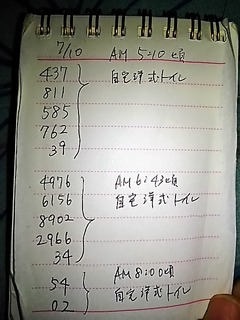 7/10 AM 5:10頃
437 自宅洋式トイレ
811
585
762
39
4976 AM 6:43頃
6156 自宅洋式トイレ
8902
2966
34
54 AM 8:00頃
0.2 自宅洋式トイレ